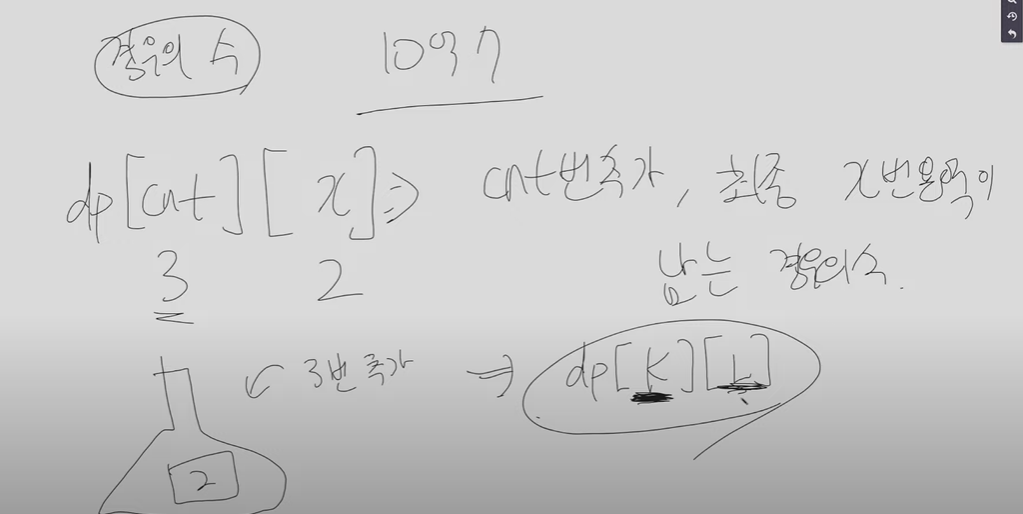 경우의 수 10억 7
dp[cnt][x] => cnt번 추가, 최종 x번 용액이
3 2 남는 경우의 수.
3번 추가 => dp[k][L]
2